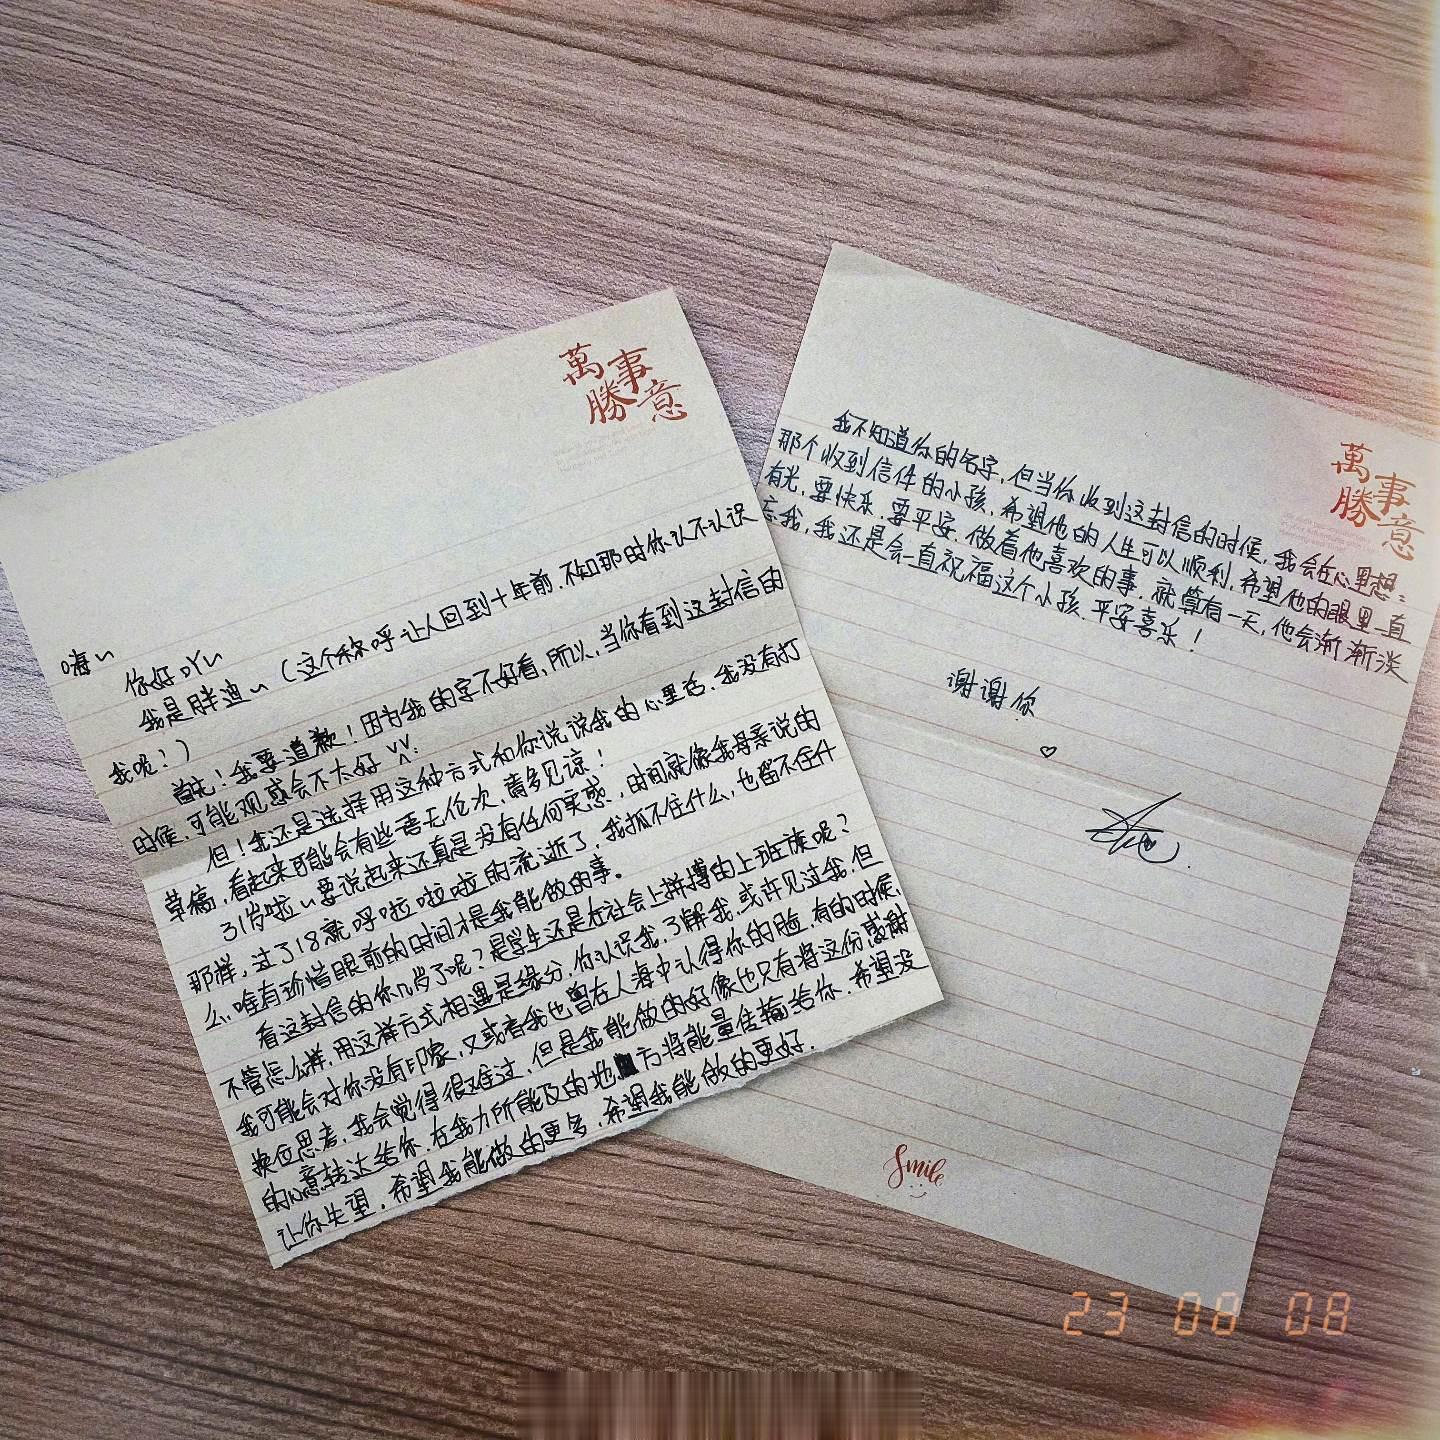 萬事
勝意
嗨~
你好吖~
我是胖迪~（这个称呼让人回到十年前，不知那时你认不认识
我呢？）
首先！我要道歉！因为我的字不好看，所以，当你看到这封信的
时候，可能观感会不太好
但！我还是选择用这种方式和你说说我的心里话，我没有打
草稿，看起来可能会有些语无伦次，请多见谅！
31岁啦~要说起来还真是没有任何实感，时间就像我母亲说的
那样，过了18就呼啦啦啦的流逝了，我抓不住什么，也留不住什
么，唯有珍惜眼前的时间才是我能做的事。
看这封信的你几岁了呢？是学生还是在社会上拼搏的上班族呢？
不管怎么样，用这样方式相遇是缘分，你认识我，了解我，或许见过我，但
我可能会对你没有印象，又或者我也曾在人海中认得你的脸，有的时候，
换位思考，我会觉得很难过，但是我能做的好像也只有将这份感谢
的心意转达给你，在我力所能及的地方将能量传输给你，希望没
让你失望，希望我能做的更多，希望我能做的更好．
萬事
勝意
我不知道你的名字，但当你收到这封信的时候，我会在心里想：
那个收到信件的小孩，希望他的人生可以顺利，希望他的眼里一直
有光，要快乐，要平安，做着他喜欢的事，就算有一天，他会渐渐淡
忘我，我还是会一直祝福这个小孩，平安喜乐！
谢谢你
♡
Smile
23 08 08